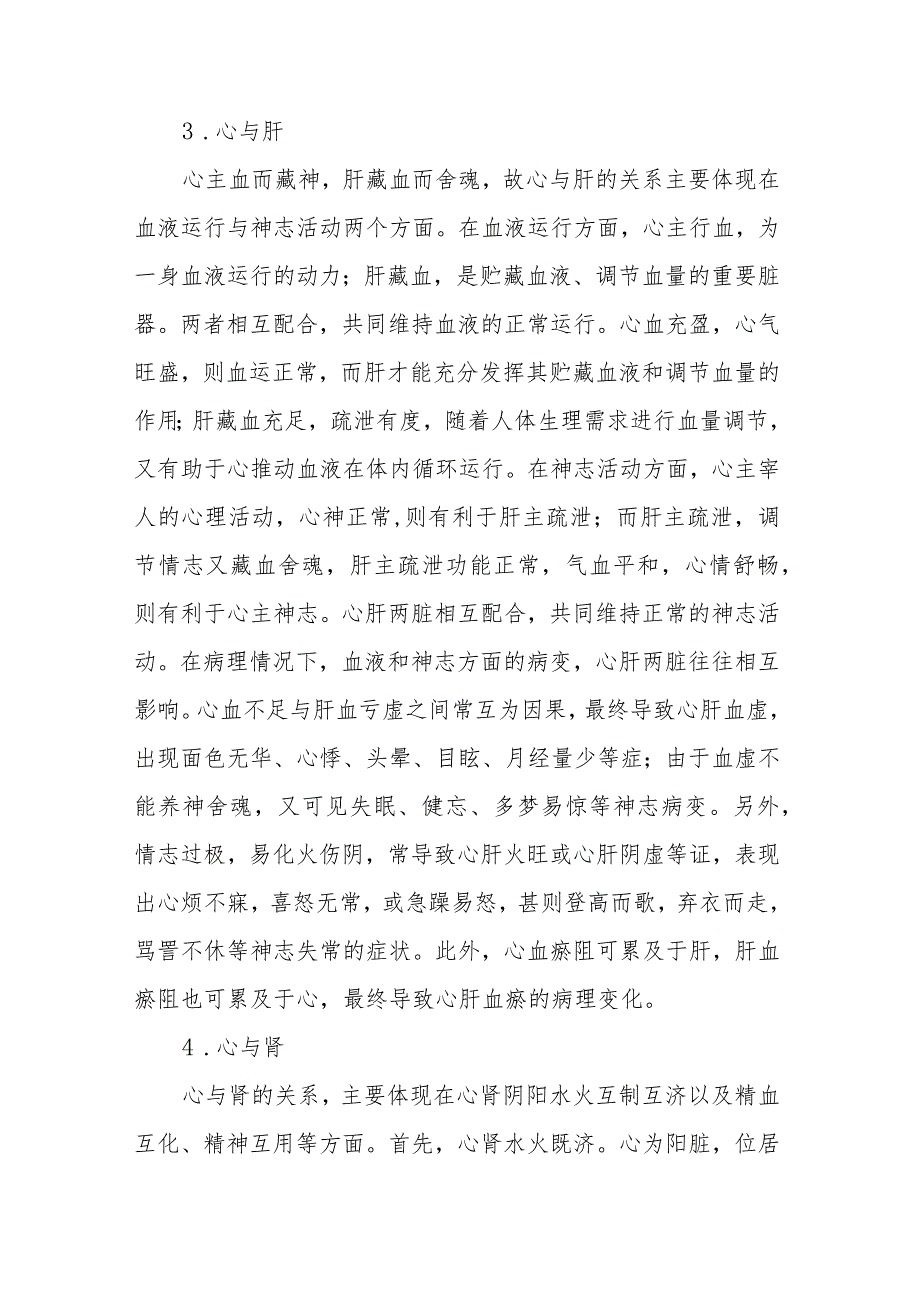 3.心与肝
心主血而藏神，肝藏血而舍魂，故心与肝的关系主要体现在
血液运行与神志活动两个方面。在血液运行方面，心主行血，为
一身血液运行的动力；肝藏血，是贮藏血液、调节血量的重要脏
器。两者相互配合，共同维持血液的正常运行。心血充盈，心气
旺盛，则血运正常，而肝才能充分发挥其贮藏血液和调节血量的
作用；肝藏血充足，疏泄有度，随着人体生理需求进行血量调节，
又有助于心推动血液在体内循环运行。在神志活动方面，心主宰
人的心理活动，心神正常,则有利于肝主疏泄；而肝主疏泄，调
节情志又藏血舍魂，肝主疏泄功能正常，气血平和，心情舒畅，
则有利于心主神志。心肝两脏相互配合，共同维持正常的神志活
动。在病理情况下，血液和神志方面的病变，心肝两脏往往相互
影响。心血不足与肝血亏虚之间常互为因果，最终导致心肝血虚，
出现面色无华、心悸、头晕、目眩、月经量少等症；由于血虚不
能养神舍魂，又可见失眠、健忘、多梦易惊等神志病变。另外，
情志过极，易化火伤阴，常导致心肝火旺或心肝阴虚等证，表现
出心烦不寐，喜怒无常，或急躁易怒，甚则登高而歌，弃衣而走，
骂詈不休等神志失常的症状。此外，心血瘀阻可累及于肝，肝血
瘀阻也可累及于心，最终导致心肝血瘀的病理变化。
4.心与肾
心与肾的关系，主要体现在心肾阴阳水火互制互济以及精血
互化、精神互用等方面。首先，心肾水火既济。心为阳脏，位居